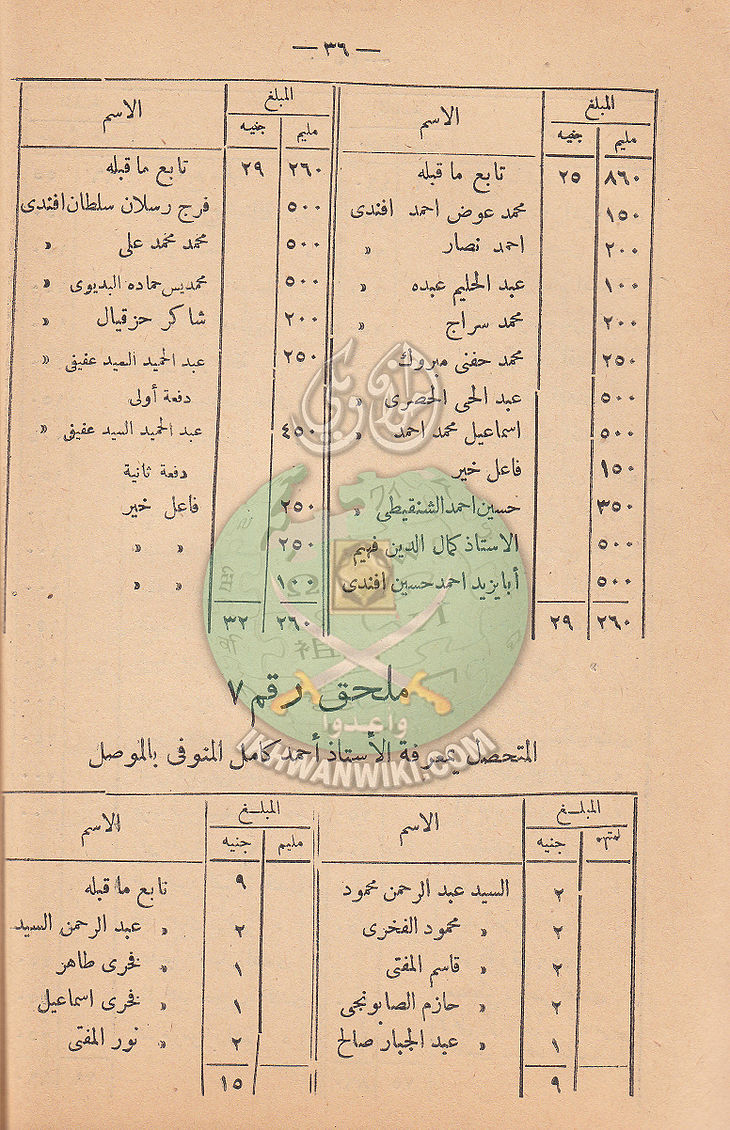 — ٣٦ —
المبلغ الاسم المبلغ الاسم
مليم جنيه مليم جنيه
٨٦٠ ٢٥ تابع ما قبله
١٥٠ محمد عوض احمد افندى
٢٠٠ احمد نصار »
١٠٠ عبد الحليم عبده »
٢٠٠ محمد سراج »
٢٥٠ محمد حفنى مبروك
٥٠٠ عبد الحى الحصرى »
٥٠٠ اسماعيل محمد احمد »
١٥٠ فاعل خير
٣٥٠ حسين احمد الشنقيطى »
٥٠٠ الاستاذ كمال الدين فهيم
٥٠٠ أبايزيد احمد حسين افندى
٢٦٠ ٢٩
٢٦٠ ٢٩ تابع ما قبله
٥٠٠ فرج رسلان سلطان افندى
٥٠٠ محمد محمد على »
٥٠٠ محمد يس حماده البديوى »
٢٠٠ شاكر حزقيال »
٢٥٠ عبد الحميد السيد عفيفى »
دفعة أولى
٤٥٠ عبد الحميد السيد عفيفى »
دفعة ثانية
٢٥٠ فاعل خير
٢٥٠ » »
١٠٠ » »
٢٦٠ ٣٢
ملحق رقم ٧
المتحصل بمعرفة الأستاذ أحمد كامل المتوفى بالموصل
المبلغ الاسم المبلغ الاسم
جنيه مليم جنيه
٢ السيد عبد الرحمن محمود
٢ » محمود الفخرى
٢ » قاسم المفتى
٢ » حازم الصابونجى
١ » عبد الجبار صالح
٩
٩ تابع ما قبله
٢ » عبد الرحمن السيد
١ » فخرى طاهر
١ » فخرى اسماعيل
٢ » نور المفتى
١٥
إخوان ويكي
وأعدوا
IKHWANWIKI.COM